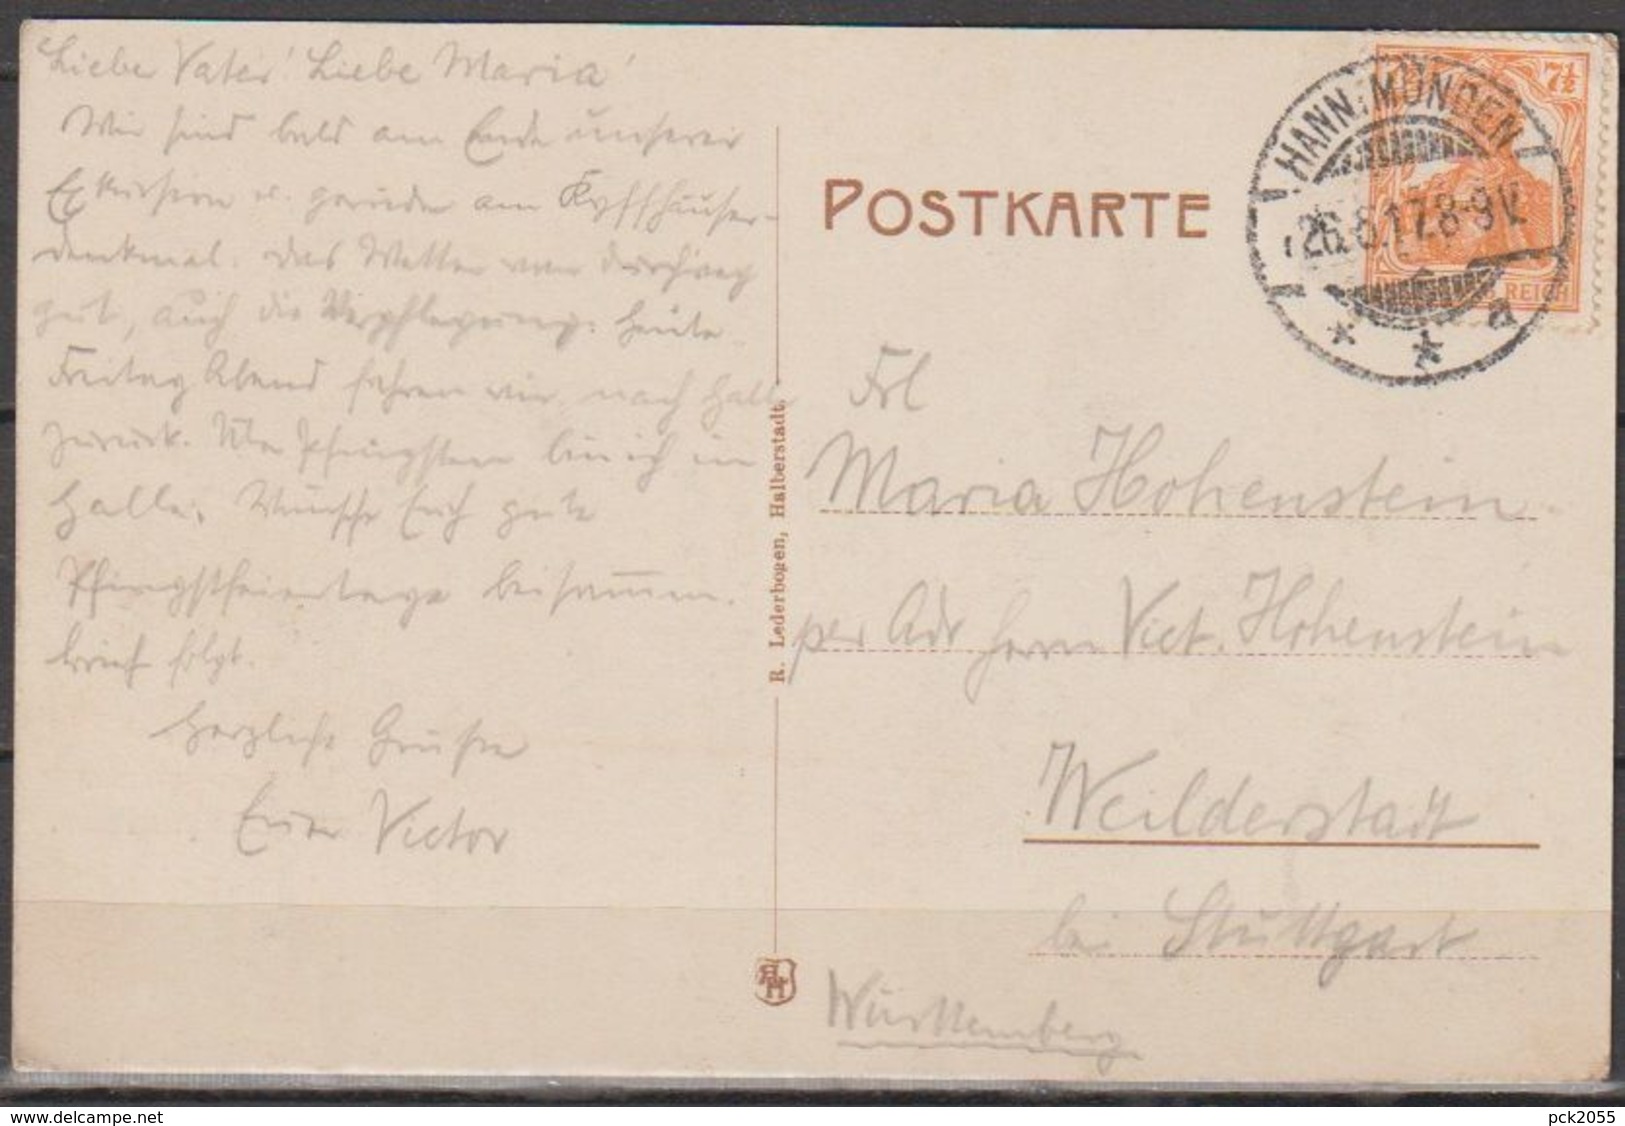 Liebe Vater! Liebe Maria!
Wir sind bald am Ende unserer
Exkursion u. gerade am Kyffhäuser-
denkmal. Das Wetter war durchweg
gut, auch die Verpflegung. Heute
Freitag Abend fahren wir nach Halle
zurück. Über Pfingsten bin ich in
Halle. Wünsche Euch gute
Pfingstfeiertage beisammen.
Brief folgt.
Herzliche Grüsse
Euer Victor
R. Lederbogen, Halberstadt.
POSTKARTE
HANN. MÜNDEN
26.17.8-9V.
* * a
7½
REICH
Frl
Maria Hohenstein
per Adr Herrn Vict. Hohenstein
Weilderstadt
bei Stuttgart
Württemberg
www.delcampe.net
pck2055